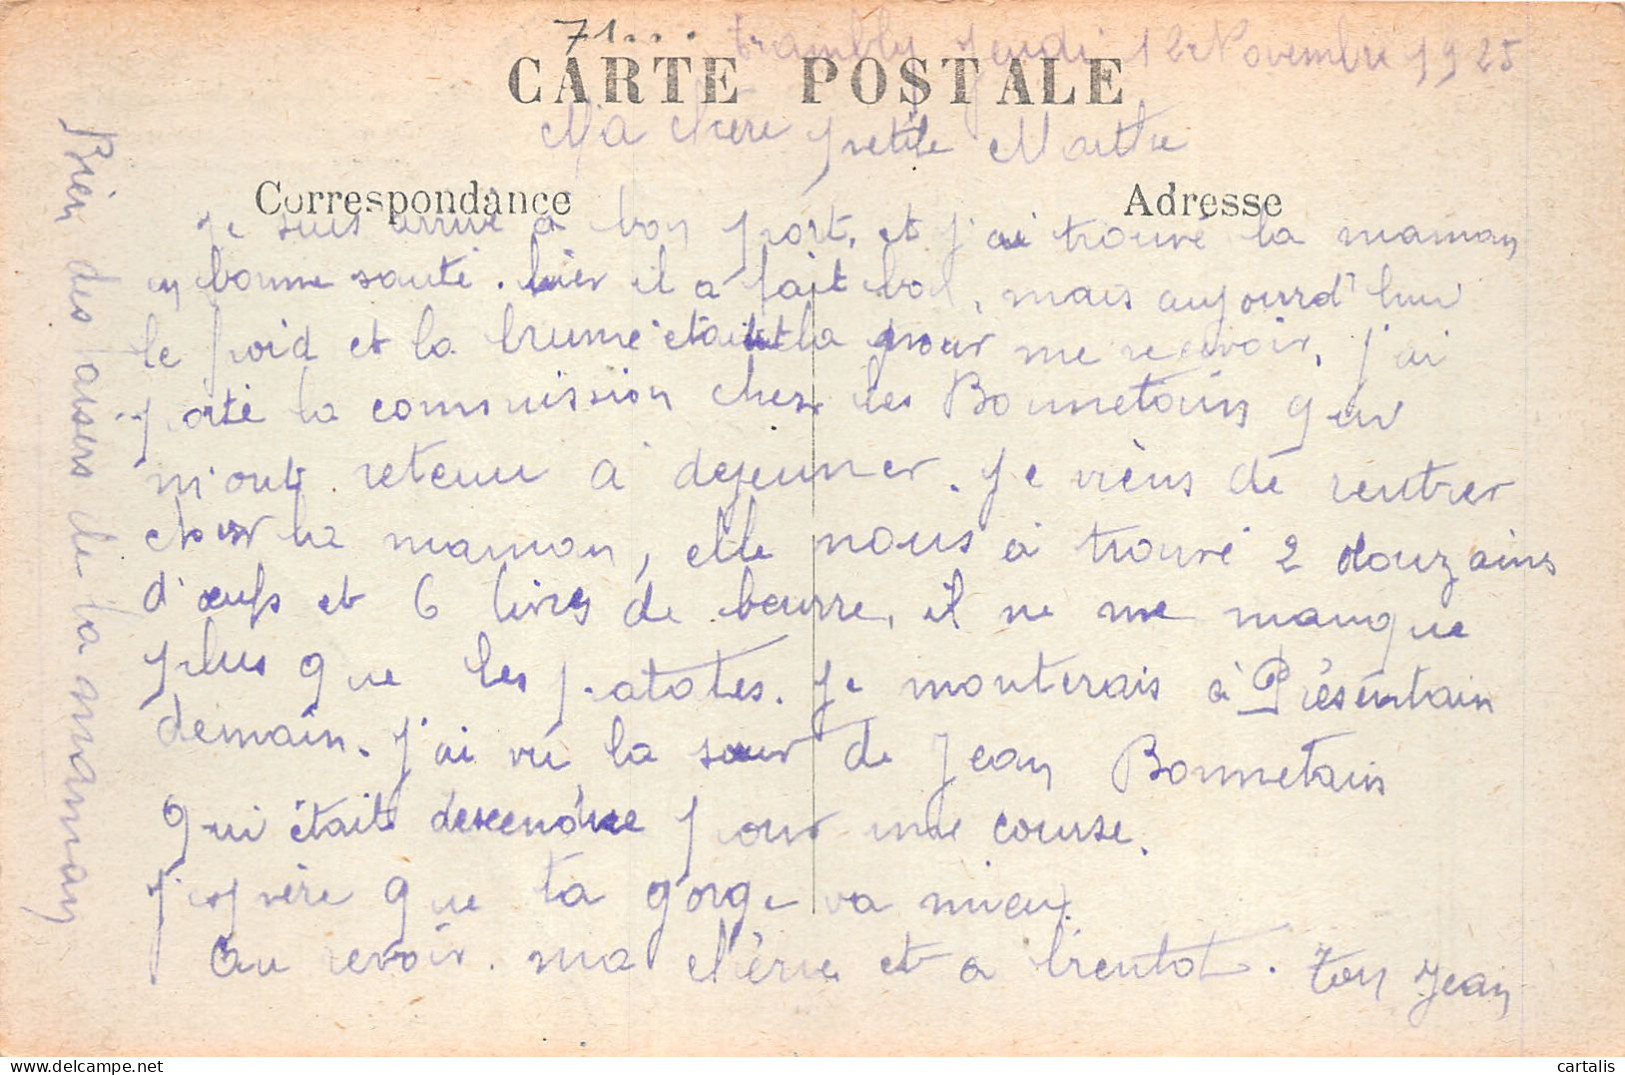 71...
Trambly Jeudi 12 Novembre 1925
CARTE POSTALE
Ma chère petite Marthe
Correspondance
Adresse
Je suis arrivé à bon port, et j'ai trouvé la maman
en bonne santé. hier il a fait bon, mais aujourd'hui
le froid et la brume était la pour me recevoir, j'ai
porté la commission chez les Bonnetain qui
m'ont retenu à dejeuner. Je viens de rentrer
chez la maman, elle nous à trouvé 2 douzains
d'œufs et 6 livres de beurre, il ne me manque
plus que les patates. Je monterais à
demain. J'ai vu la sœur de Jean Bonnetain
qui était descendue pour une course.
J'espère que ta gorge va mieux.
Au revoir ma chérie et a bientot. Ton Jean
Bien des baisers de la maman
cartalis